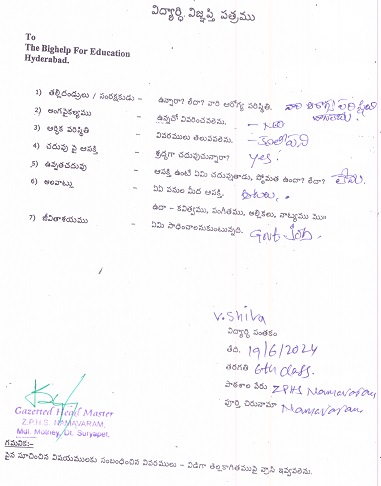 విద్యార్థి విజ్ఞప్తి పత్రము
To
The Bighelp For Education
Hyderabad.
1) తల్లిదండ్రులు / సంరక్షకుడు – ఉన్నారా? లేదా? వారి ఆరోగ్య పరిస్థితి.
2) అంగవైకల్యము – ఉన్నచో వివరించవలెను. – No
3) ఆర్థిక పరిస్థితి – వివరములు తెలుపవలెను. – కూలిపని
4) చదువు పై ఆసక్తి – శ్రద్ధగా చదువుచున్నారా? yes!
5) ఉన్నతచదువు – ఆసక్తి ఉంటే ఏమి చదువుతాడు, స్తోమత ఉందా? లేదా? లేదు.
6) అలవాట్లు – ఏఏ పనుల మీద ఆసక్తి. ఆటలు.
ఉదా – కవిత్వము, సంగీతము, అల్లికలు, నాట్యము మొ॥
7) జీవితాశయము – ఏమి సాధించాలనుకుంటున్నది. Govt Job.
V. Shiva
విద్యార్థి సంతకం
తేది. 19/6/2024
తరగతి 6th class.
పాఠశాల పేరు ZPHS Namavaram
పూర్తి చిరునామా Namavaram
Gazetted Head Master
Z.P.H.S. NAMAVARAM,
Mdl. Mothey, Dt. Suryapet.
గమనిక:-
పైన సూచించిన విషయములకు సంబంధించిన వివరములు – విడిగా తెల్లకాగితముపై వ్రాసి ఇవ్వవలెను.